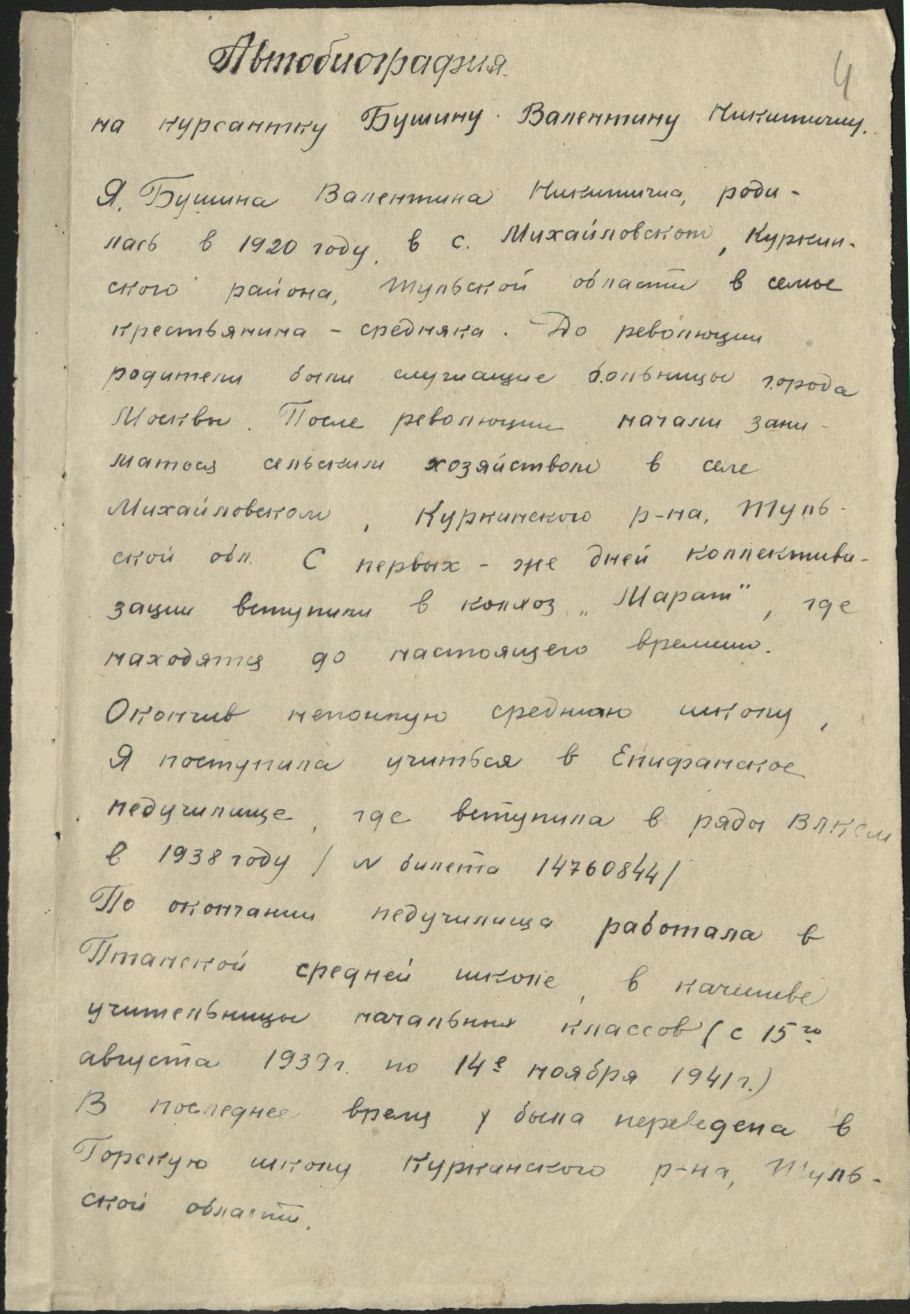 Автобиография
4
на курсантку Бушину Валентину Никитичну.
Я, Бушина Валентина Никитична, роди-
лась в 1920 году, в с. Михайловском, Куркин-
ского района, Тульской области в семье
крестьянина - средняка. До революции
родители были служащие больницы города
Москвы. После революции начали зани-
маться сельским хозяйством в селе
Михайловском, Куркинского р-на, Туль-
ской обл. С первых - же дней коллективи-
зации вступили в колхоз „Марат", где
находятся до настоящего времени.
Окончив неполную среднюю школу,
Я поступила учиться в Епифанское
педучилище, где вступила в ряды ВЛКСМ
в 1938 году / № билета 14760844/
По окончании педучилища работала в
Птанской средней школе, в качестве
учительницы начальных классов (с 15го
августа 1939г. по 14е ноября 1941г.)
В последнее время я была переведена в
Горскую школу Куркинского р-на, Туль-
ской области.